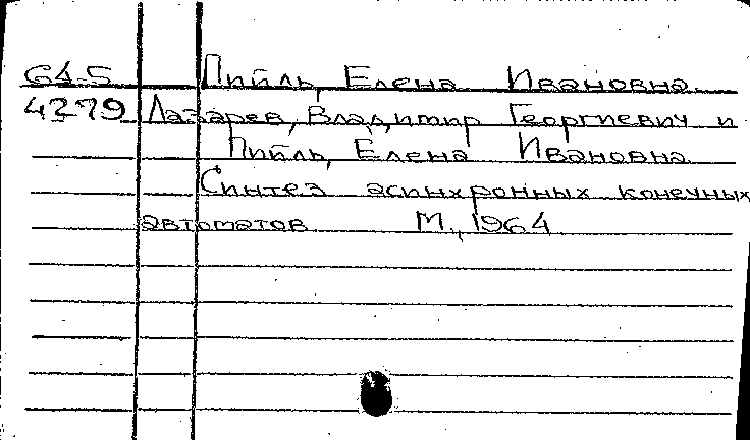 64-5 Пийль, Елена Ивановна
4279 Лазарев, Владимир Георгиевич и
Пийль, Елена Ивановна
Синтез асинхронных конечных
автоматов М., 1964